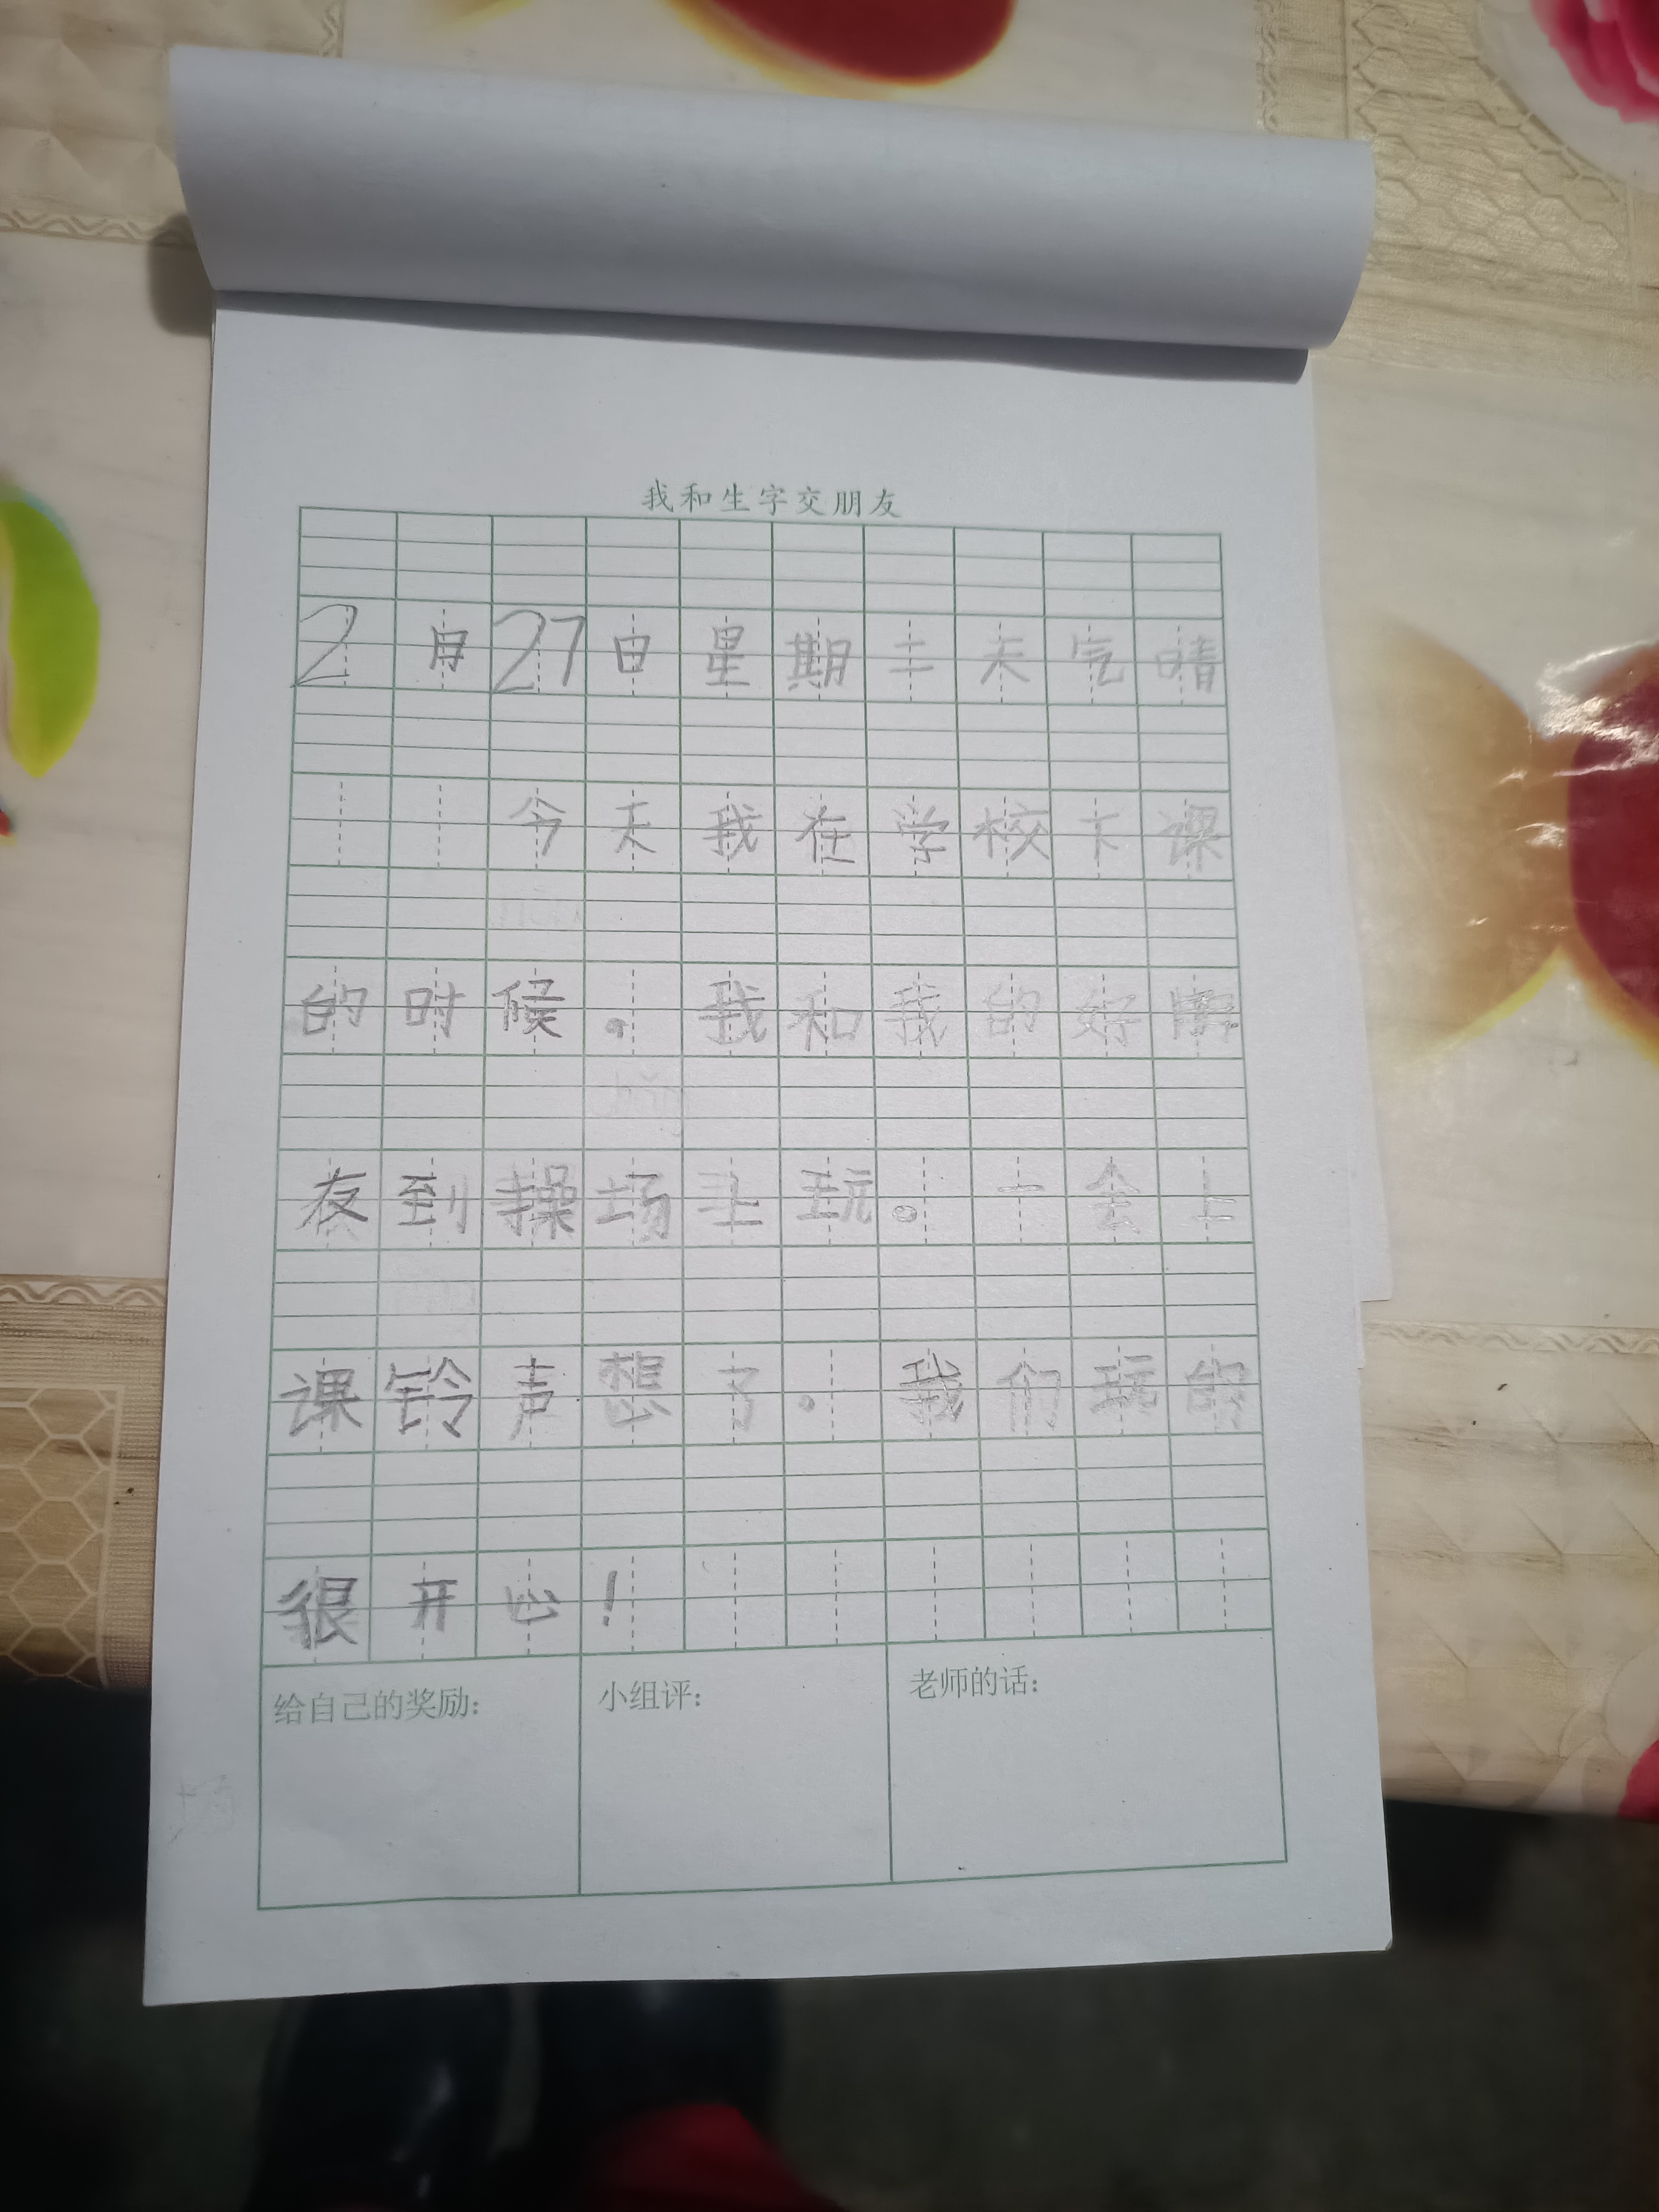 我和生字交朋友
2月27日星期二天气晴
今天我在学校下课
的时候。我和我的好朋
友到操场上玩。一会上
课铃声想了。我们玩的
很开心!
给自己的奖励:
小组评:
老师的话: